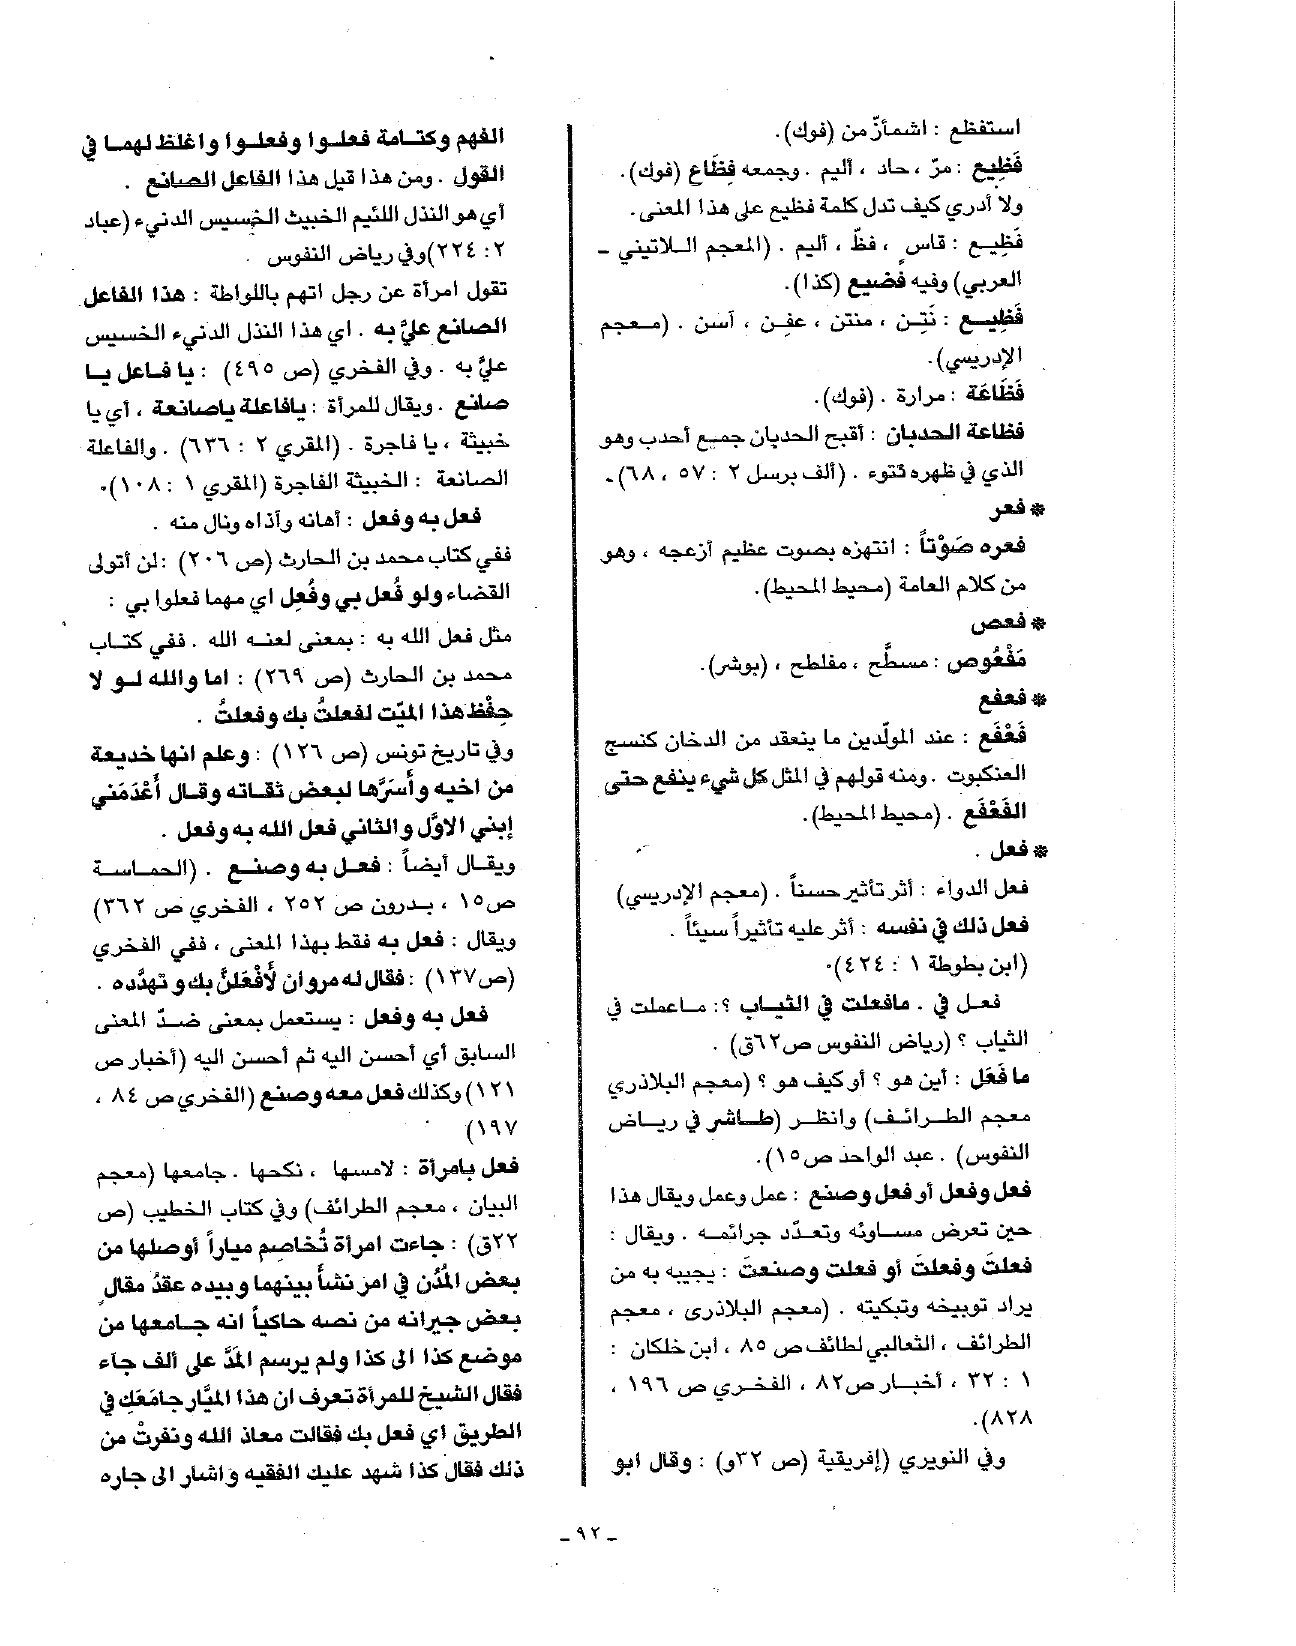 استفظع : اشمأزّ من (فوك).
فَظِيع : مرّ ، حاد ، أليم . وجمعه فِظَاع (فوك).
ولا أدري كيف تدل كلمة فظيع على هذا المعنى.
فَظِيـع : قاسٍ ، فظّ ، أليم . (المعجم الـلاتيني ـ
العربي) وفيه فضيع (كذا).
فَظِيـــع : نَتِـن ، منتن ، عفِـن ، آسن . (مـعـجم
الإدريسي).
فَظَاعَة : مرارة . (فوك).
فظاعة الحدبان : أقبح الحدبان جمع أحدب وهو
الذي في ظهره نتوء . (ألف برسل ٢ : ٥٧ ، ٦٨).
* فعر
فعره صَوْتاً : انتهزه بصوت عظيم أزعجه ، وهو
من كلام العامة (محيط المحيط).
* فعص
مَفْعُوص : مسطَّح ، مفلطح ، (بوشر).
* فعفع
فَعْفَع : عند المولّدين ما ينعقد من الدخان كنسج
العنكبوت . ومنه قولهم في المثل كل شيء ينفع حتى
الفَعْفَع . (محيط المحيط).
* فعل .
فعل الدواء : أثر تأثير حسناً . (معجم الإدريسي)
فعل ذلك في نفسه : أثر عليه تأثيراً سيئاً .
(ابن بطوطة ١ : ٤٢٤).
فعـل في . مافعلت في الثيـاب ؟: مـاعملت في
الثياب ؟ (رياض النفوس ص٦٢ق) .
ما فَعَل : أين هو ؟ أو كيف هو ؟ (معجم البلاذري
معجم الطـرائـف) وانظـر (طـاشر في ريـاض
النفوس) . عبد الواحد ص١٥).
فعل وفعل أو فعل وصنع : عمل وعمل ويقال هذا
حين تعرض مسـاوئه وتعـدّد جرائمـه . ويقال :
فعلتَ وفعلتَ أو فعلت وصنعتَ : يجيبه به من
يراد توبيخه وتبكيته . (معجم البلاذرى ، معجم
الطرائف ، الثعالبي لطائف ص ٨٥ ، ابن خلكان :
١ : ٣٢ ، أخبـار ص٨٢ ، الفخري ص ١٩٦ ،
٨٢٨).
وفي النويري (إفريقية (ص ٣٢و) : وقال ابو
الفهم وكتـامة فعلـوا وفعلـوا واغلظ لهمـا في
القول . ومن هذا قيل هذا الفاعل الصانع .
أي هو النذل اللئيم الخبيث الخسيس الدنيء (عباد
٢: ٢٢٤)وفي رياض النفوس .
تقول امرأة عن رجل اتهم باللواطة : هذا الفاعل
الصانع عليَّ به . اي هذا النذل الدنيء الخسيس
عليَّ به . وفي الفخري (ص ٤٩٥) : يا فـاعل يـا
صانع . ويقال للمرأة : يافاعلة ياصانعة ، أي يا
خبيثة ، يا فاجرة . (المقري ٢ : ٦٣٦) . والفاعلة
الصانعة : الخبيثة الفاجرة (المقري ١ : ١٠٨).
فعل به وفعل : أهانه وآذاه ونال منه .
ففي كتاب محمد بن الحارث (ص ٢٠٦) :لن أتولى
القضاء ولو فُعل بي وفُعِل اي مهما فعلوا بي :
مثل فعل الله به : بمعنى لعنه الله . ففي كتـاب
محمد بن الحارث (ص ٢٦٩) : اما والله لـو لا
حِفْظ هذا الميّت لفعلتُ بك وفعلتُ .
وفي تاريخ تونس (ص ١٢٦) : وعلم انها خديعة
من اخيه وأسرَّها لبعض ثقـاته وقـال أعْدَمَني
إبني الاوَّل والثاني فعل الله به وفعل .
ويقـال أيضـاً : فعـل به وصنـع . (الحمـاسـة
ص١٥ ، بـدرون ص ٢٥٢ ، الفخري ص ٣٦٢)
ويقال : فعل به فقط بهذا المعنى ، ففي الفخري
(ص١٣٧) : فقال له مروان لأَفْعَلنَّ بك وتهدّده .
فعل به وفعل : يستعمل بمعنى ضـدّ المعنى
السابق أي أحسن اليه ثم أحسن اليه (أخبار ص
١٢١) وكذلك فعل معه وصنع (الفخري ص ٨٤ ،
١٩٧)
فعل بامرأة : لامسها ، نكحها . جامعها (معجم
البيان ، معجم الطرائف) وفي كتاب الخطيب (ص
٢٢ق) : جاءت امرأة تُخاصم مياراً أوصلها من
بعض المُدُن في امر نشأ بينهما وبيده عقدُ مقالٍ
بعض جيرانه من نصه حاكياً انه جـامعها من
موضع كذا الى كذا ولم يرسم المدَّ على ألف جاء
فقال الشيخ للمرأة تعرف ان هذا الميَّار جامَعَكِ في
الطريق اي فعل بك فقالت معاذ الله ونفرتْ من
ذلك فقال كذا شهد عليك الفقيه واشار الى جاره
ـ ٩٢ ـ